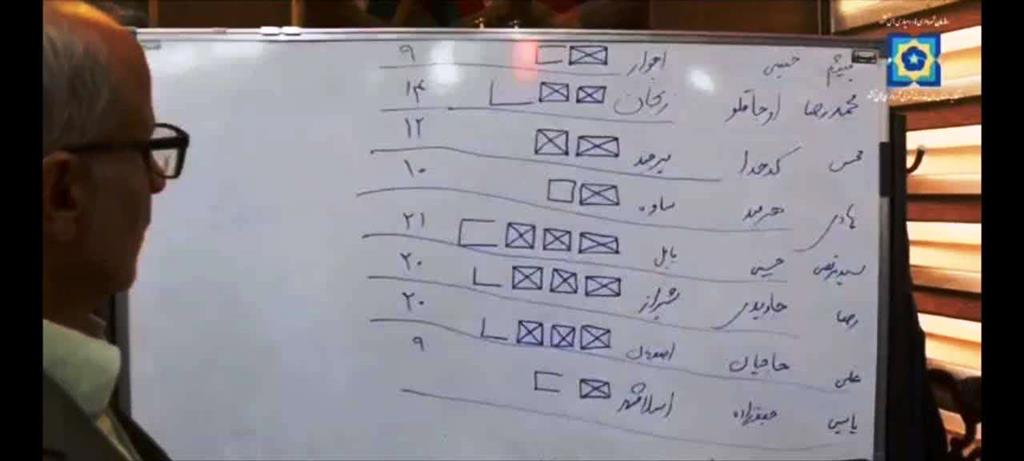 میثم حبیبی اهواز ۹
محمدرضا اوجاقلو زنجان ۱۴
محسن کدخدا بیرجند ۱۲
هادی هنرمند ساوه ۱۰
سیدمرتضی حسینی بابل ۲۱
رضا جاویدی شیراز ۲۰
علی حاجیان اصفهان ۲۰
یاسین اسلامشهر ۹